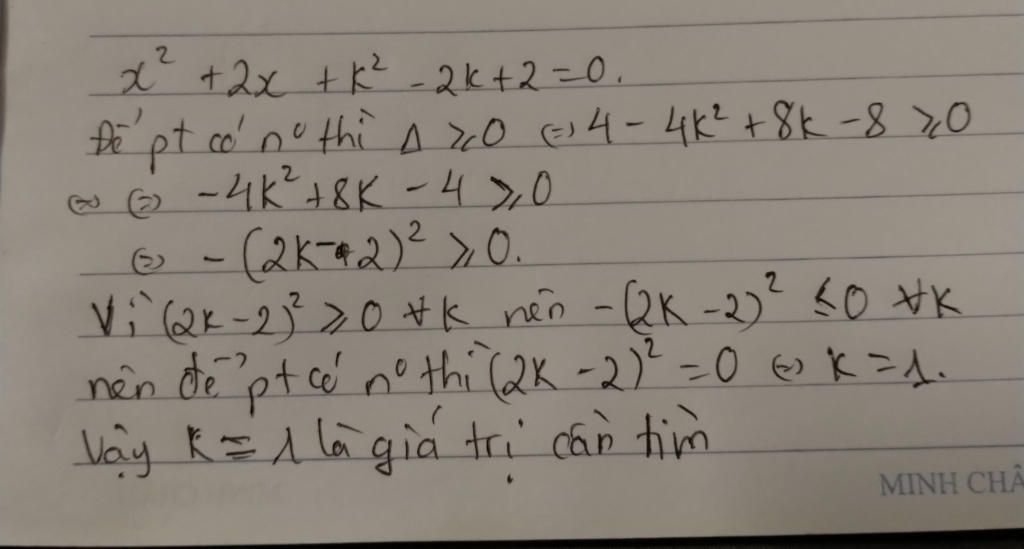 x² + 2x + k² - 2k + 2 = 0.
Để pt có nº thì Δ ⩾ 0 ⇔ 4 - 4k² + 8k - 8 ⩾ 0
⇔ ⇔ -4k² + 8k - 4 ⩾ 0
⇔ - (2k - 2)² ⩾ 0.
Vì (2k - 2)² ⩾ 0 ∀k nên - (2k - 2)² ≤ 0 ∀k
nên để pt có nº thì (2k - 2)² = 0 ⇔ k = 1.
Vậy k = 1 là giá trị cần tìm
MINH CHÂ